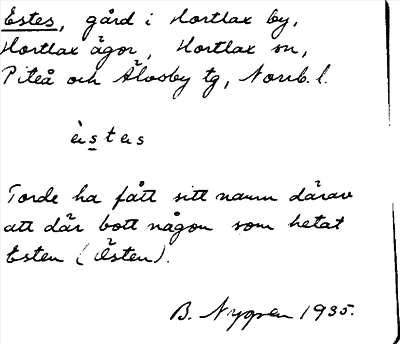 Estes, gård i Hortlax by,
Hortlax ägor, Hortlax sn,
Piteå och Älvsby tg, Norrb. l.
è s t e s
Torde ha fått sitt namn därav
att där bott någon som hetat
Esten (Östen).
B. Nygren 1935.